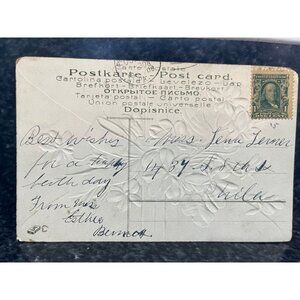 Carte postale
Postkarte Post card.
Cartolina postale Levelezo-Lap
Brefkort - Briefkaart - Brevkort
ОТКРЫТОЕ ПИСЬМО.
Tarjeta postal Carto postal
Union postale universelle
Dopisnice.
Best Wishes
for a happy
birth day
From
Esther
Mrs. Lena Lerner
1437
Phila